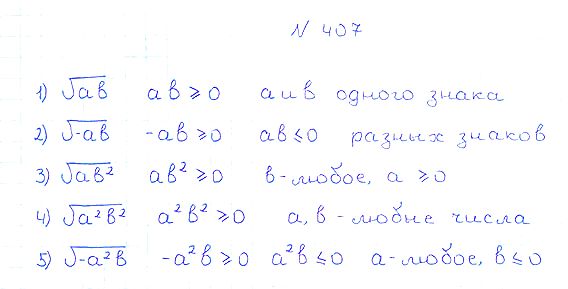 N 407
1) √ab ab ⩾ 0 a и b одного знака
2) √-ab -ab ⩾ 0 ab ⩽ 0 разных знаков
3) √ab² ab² ⩾ 0 b - любое, a ⩾ 0
4) √a²b² a²b² ⩾ 0 a, b - любые числа
5) √-a²b -a²b ⩾ 0 a²b ⩽ 0 a - любое, b ⩽ 0